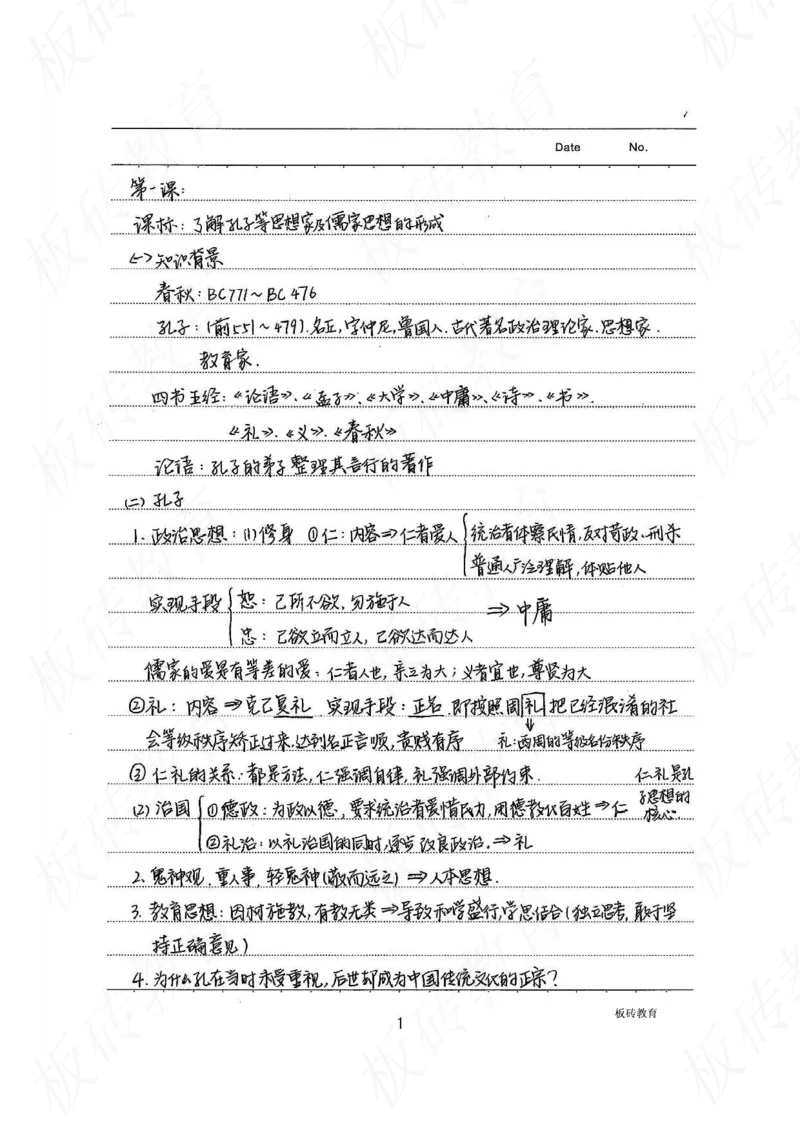 Date No.
第一课:
课标:了解孔子等思想家及儒家思想的形成
(一)知识背景
春秋:BC771~BC 476
孔子:(前551~479).名丘,字仲尼,鲁国人.古代著名政治理论家.思想家.
教育家.
四书五经:《论语》、《孟子》、《大学》、《中庸》、《诗》、《书》.
《礼》、《义》、《春秋》
论语:孔子的弟子整理其言行的著作
(二)孔子
1、政治思想:(1)修身 ①仁:内容⇒仁者爱人 统治者体察民情,反对苛政、刑杀
普通人广泛理解,体贴他人
实现手段 恕:己所不欲,勿施于人 ⇒中庸
忠:己欲立而立人,己欲达而达人
儒家的爱是有等差的爱:仁者人也,亲亲为大;义者宜也,尊贤为大
②礼:内容⇒克己复礼 实现手段:正名,即按照周礼把已经混淆的社
会等级秩序矫正过来,达到名正言顺,贵贱有序 礼:西周的等级名份秩序
③仁礼的关系:都是方法,仁强调自律,礼强调外部约束. 仁.礼是孔
子思想的
核心
(2)治国 ①德政:为政以德,要求统治者爱惜民力,用德教化百姓⇒仁
②礼治:以礼治国的同时,逐步改良政治.⇒礼
2、鬼神观,重人事,轻鬼神(敬而远之)⇒人本思想.
3、教育思想:因材施教,有教无类⇒导致私学盛行,学思结合(独立思考,敢于坚
持正确意见)
4、为什么孔在当时未受重视,后世却成为中国传统文化的正宗?
板砖教育
1